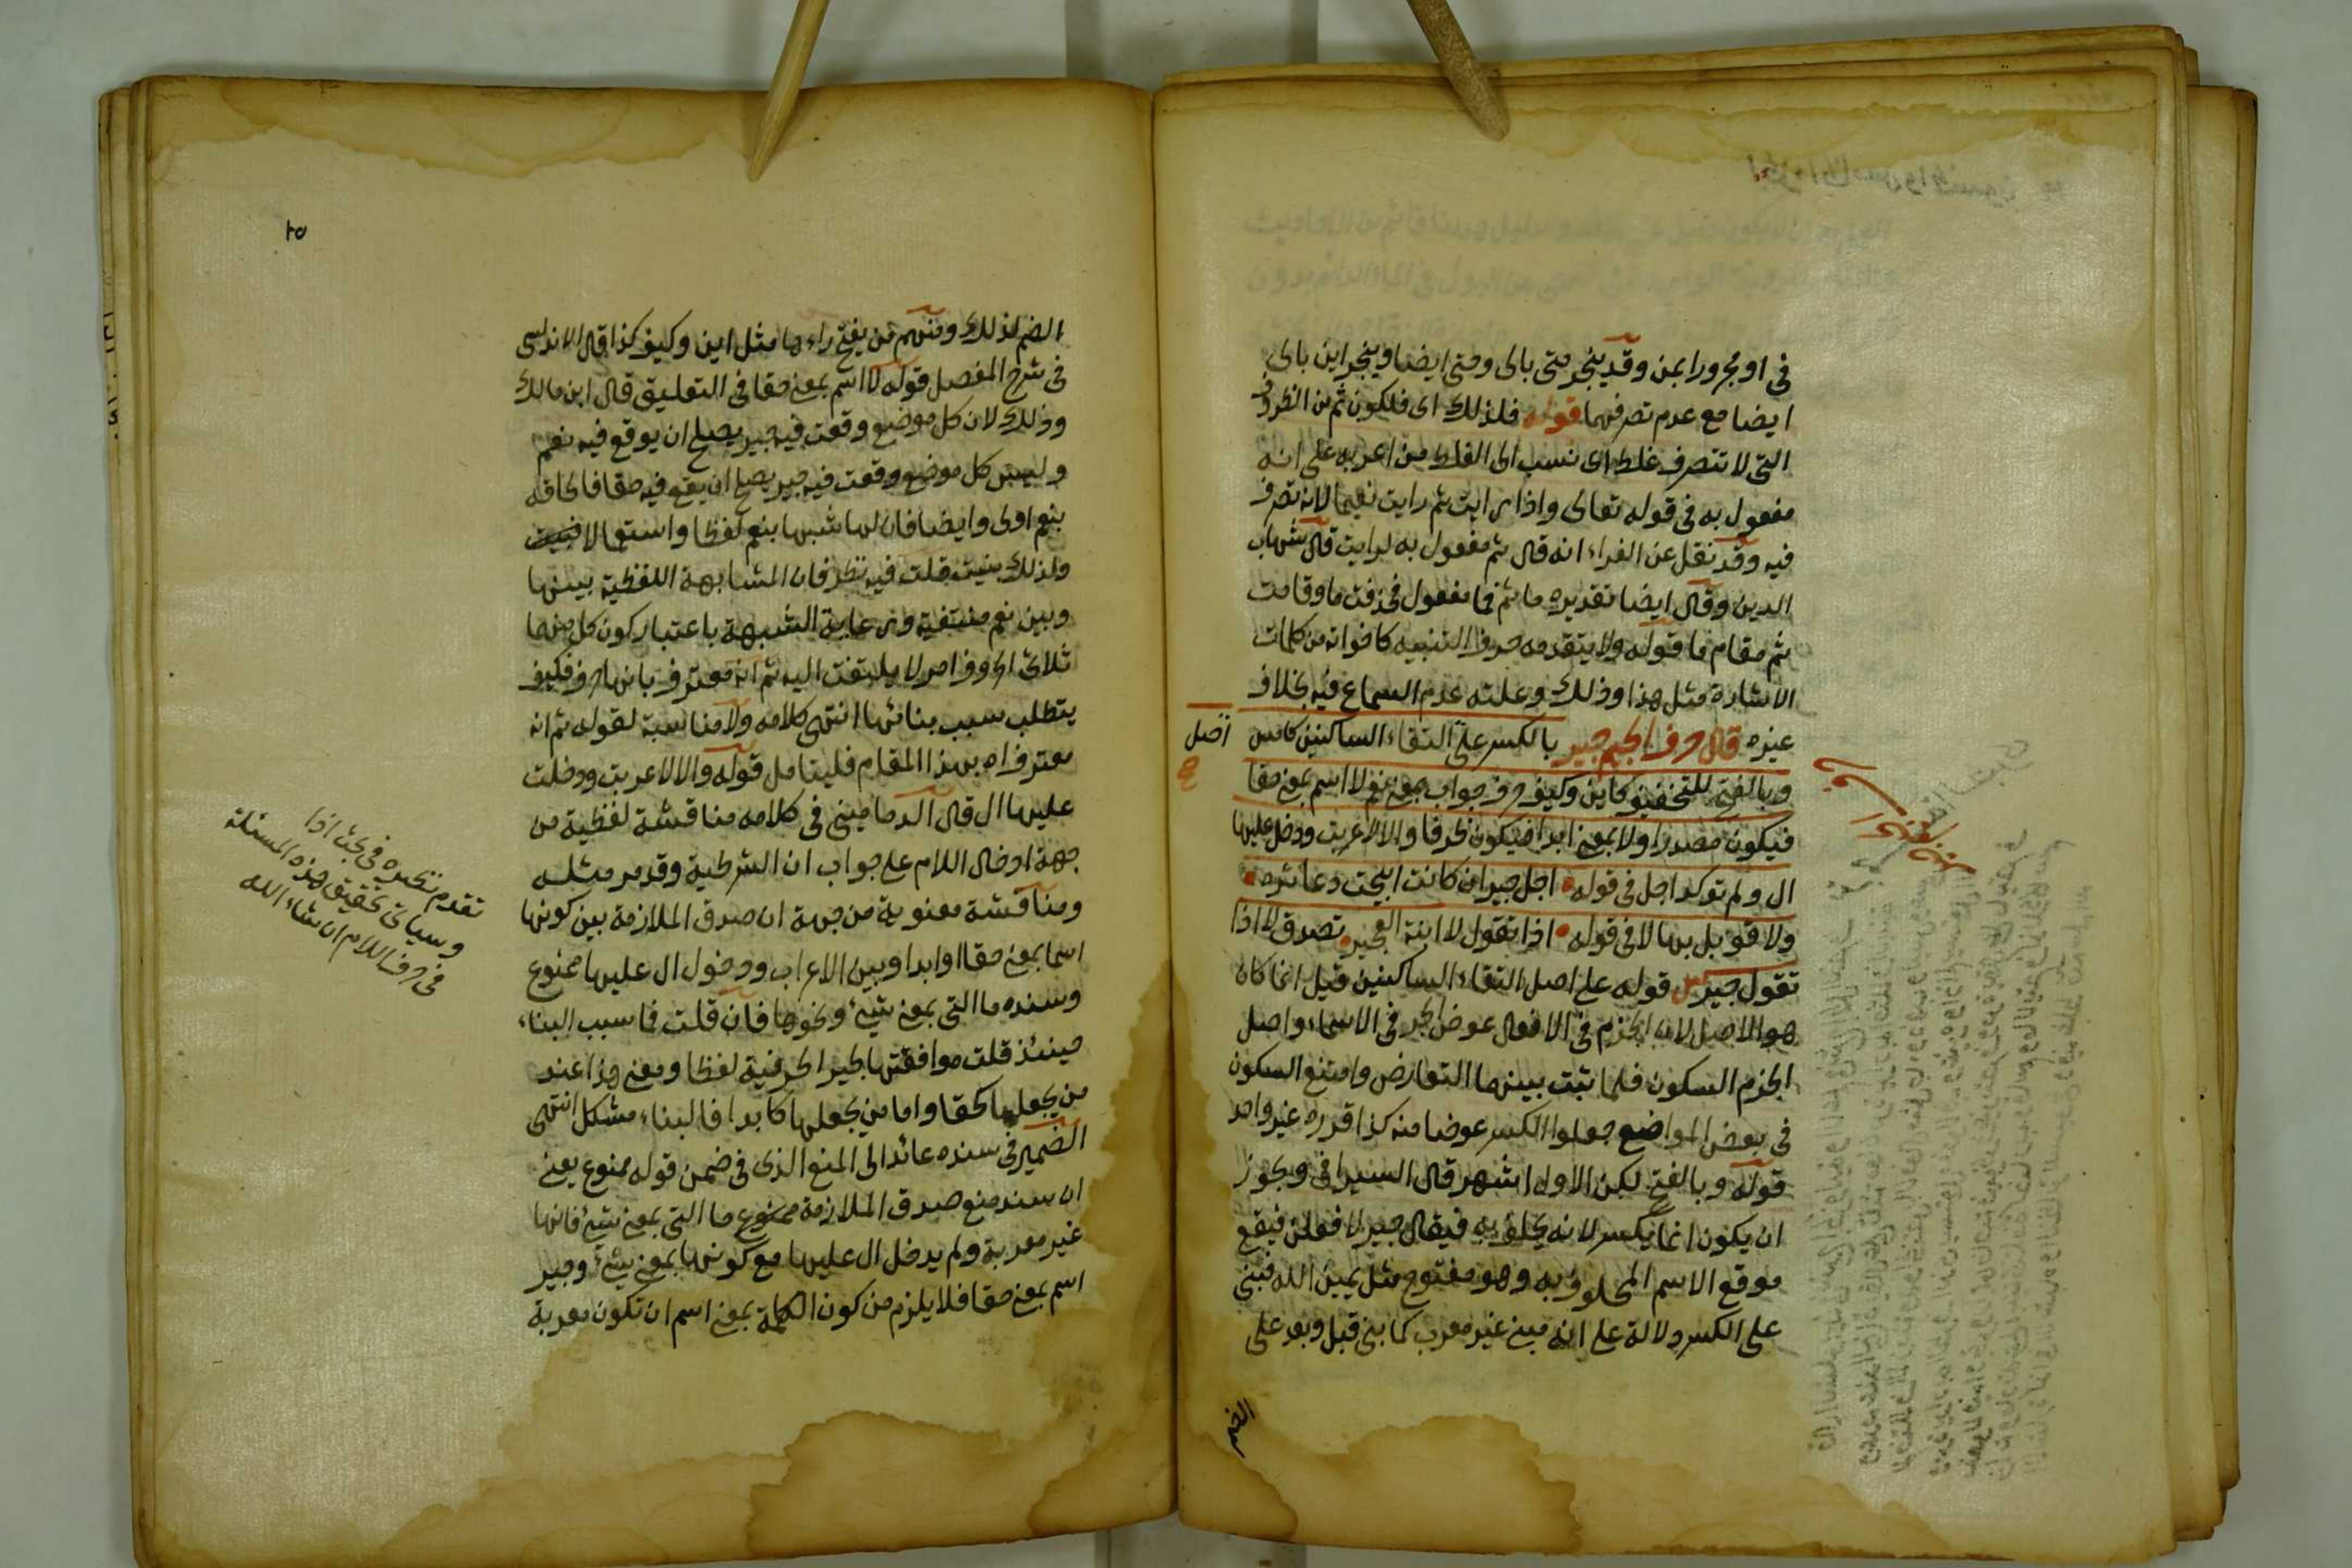 فى او مجرورا بمن وقد ينجر متى بالى وحتى ايضا وينجر اين بالى
ايضا مع عدم تصرفهما قوله فلذلك اى فلكون ثم من الظروف
التى لا تتصرف غلط اى نسب الى الغلط من اعربه على انه
مفعول به فى قوله تعالى واذا رايت ثم رايت نعيما لانه تصرف
فيه وقد نقل عن الفراء انه قال ثم مفعول به لرايت قال شهاب
الدين وقال ايضا تقديره ما ثم فما مفعول فحذفت ما وقامت
ثم مقام ما قوله ولا يتقدمه حرف التنبيه كاخواته من كلمات
الاشارة مثل هذا وذلك وعلته عدم السماع فيه بخلاف
غيره قال حرف الجيم جير بالكسر على التقاء الساكنين كامس
اصل
صح
وبالفتح للتخفيف كاين وكيف حرف جواب بمعنى نعم لا اسم بمعنى حقا
فيكون مصدرا ولا بمعنى ابدا فيكون ظرفا والا لاعربت ودخل عليها
ال ولم توكد اجل فى قوله اجل جير ان كانت ابيحت دعاثره
ولا قوبل بها لا فى قوله اذا تقول لا ابنة العجير تصدق لا اذا
تقول جير ش قوله على اصل التقاء الساكنين قيل انما كان
هو الاصل لان الجزم فى الافعال عوض الجر فى الاسماء واصل
الجزم السكون فلما ثبت بينهما التعارض وامتنع السكون
فى بعض المواضع جعلوا الكسر عوضا منه كذا قدره غير واحد
قوله وبالفتح لكن الاول اشهر قال السيرافى ويجوز
ان يكون انما يكسر لانه يحلف به فيقال جير لا فعلن فيقع
موقع الاسم المحلوف به وهو مفتوح مثل يمين الله فبنى
على الكسر دلالة على انه مبنى غير معرب كما بنى قبل وبعد على
الضم
الضم لذلك ومنهم من يفتح راءها مثل اين وكيف كذا قال الاندلسى
فى شرح المفصل قوله لا اسم بمعنى حقا فى التعليق قال ابن مالك
وذلك لان كل موضع وقعت فيه جير يصلح ان يوقع فيه نعم
وليس كل موضع وقعت فيه جير يصلح ان يقع فيه حقا فالحاقه
بنعم اولى وايضا فان لها شبها بنعم لفظا واستعمالا
ولذلك بنيت قلت فيه نظر فان المشابهة اللفظية بينها
وبين نعم منتفية ورعاية الشبهة باعتبار كون كل منهما
ثلاثى الحروف امر لا يلتفت اليه ثم انه معترف بانها حرف فكيف
يتطلب سبب بنائها انتهى كلامه ولا مناسبة لقوله ثم انه
معترف اه بهذا المقام فليتامل قوله والا لاعربت ودخلت
عليها ال قال الدمامينى فى كلامه مناقشة لفظية من
جهة ادخال اللام على جواب ان الشرطية وقد مر مثله
ومناقشة معنوية من جهة ان صدق الملازمة بين كونها
اسما بمعنى حقا او ابدا وبين الاعراب ودخول ال عليها ممنوع
وسنده ما التى بمعنى شيئ ونحوها فان قلت فما سبب البناء
حينئذ قلت موافقتها لجير الحرفية لفظا ومعنى هذا عند
من يجعلها كحقا واما من يجعلها كابدا فالبناء مشكل انتهى
الضمير فى سنده عائد الى المنع الذى فى ضمن قوله ممنوع يعنى
ان سند منع صدق الملازمة ممنوع ما التى بمعنى شيئ فانها
غير معربة ولم يدخل ال عليها مع كونها بمعنى شيئ وجير
اسم بمعنى حقا فلا يلزم من كون الكلمة بمعنى اسم ان تكون معربة
تقدم نظيره فى بحث اذا
وسياتى تحقيق هذه المسئلة
فى حرف اللام ان شاء الله